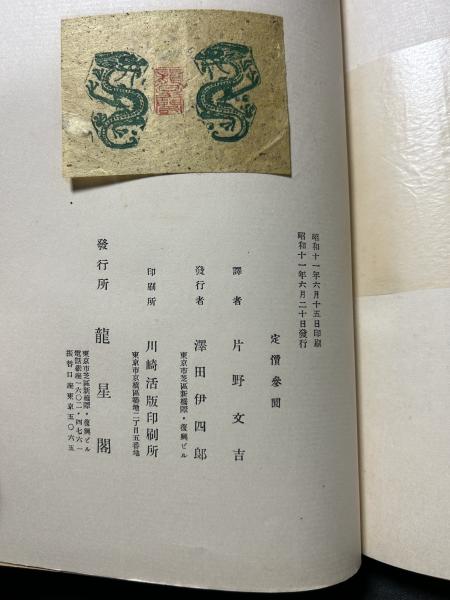 昭和十一年六月十五日印刷
昭和十一年六月二十日發行
定價參圓
譯者 片野文吉
發行者 澤田伊四郎
東京市芝區新橋際・復興ビル
印刷所 川崎活版印刷所
東京市京橋區築地二丁目五番地
發行所 龍星閣
東京市芝區新橋際・復興ビル
電話銀座一六〇二・四七六一
振替口座東京五〇六五